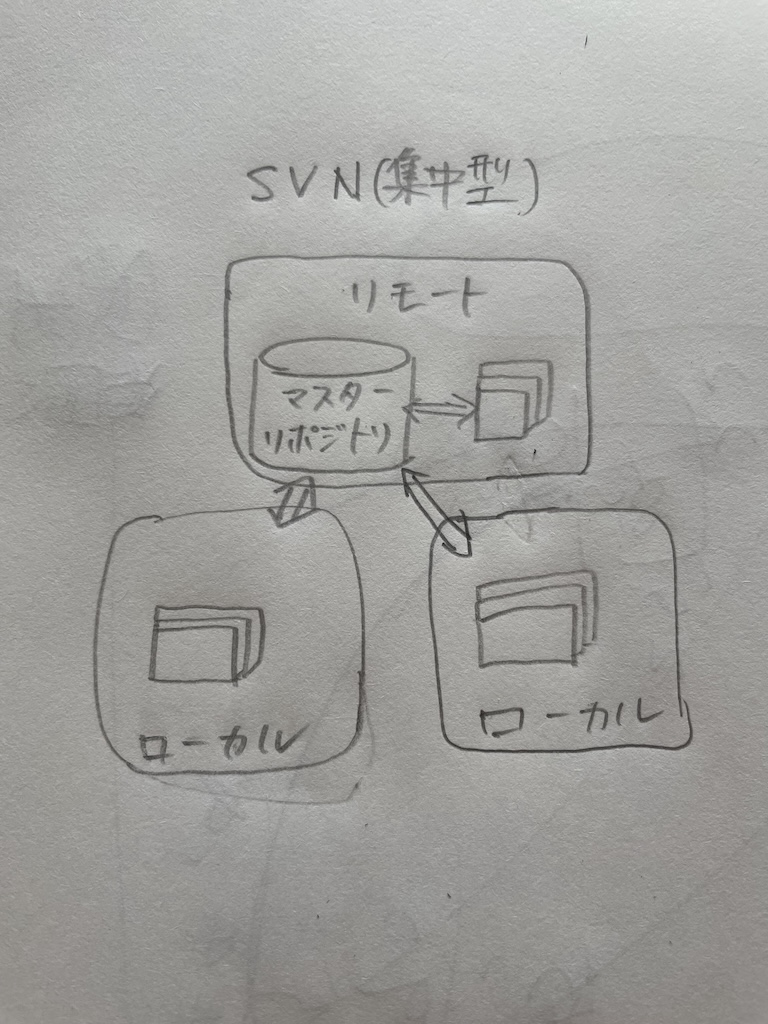 SVN(集中型)
リモート
マスター
リポジトリ
ローカル
ローカル